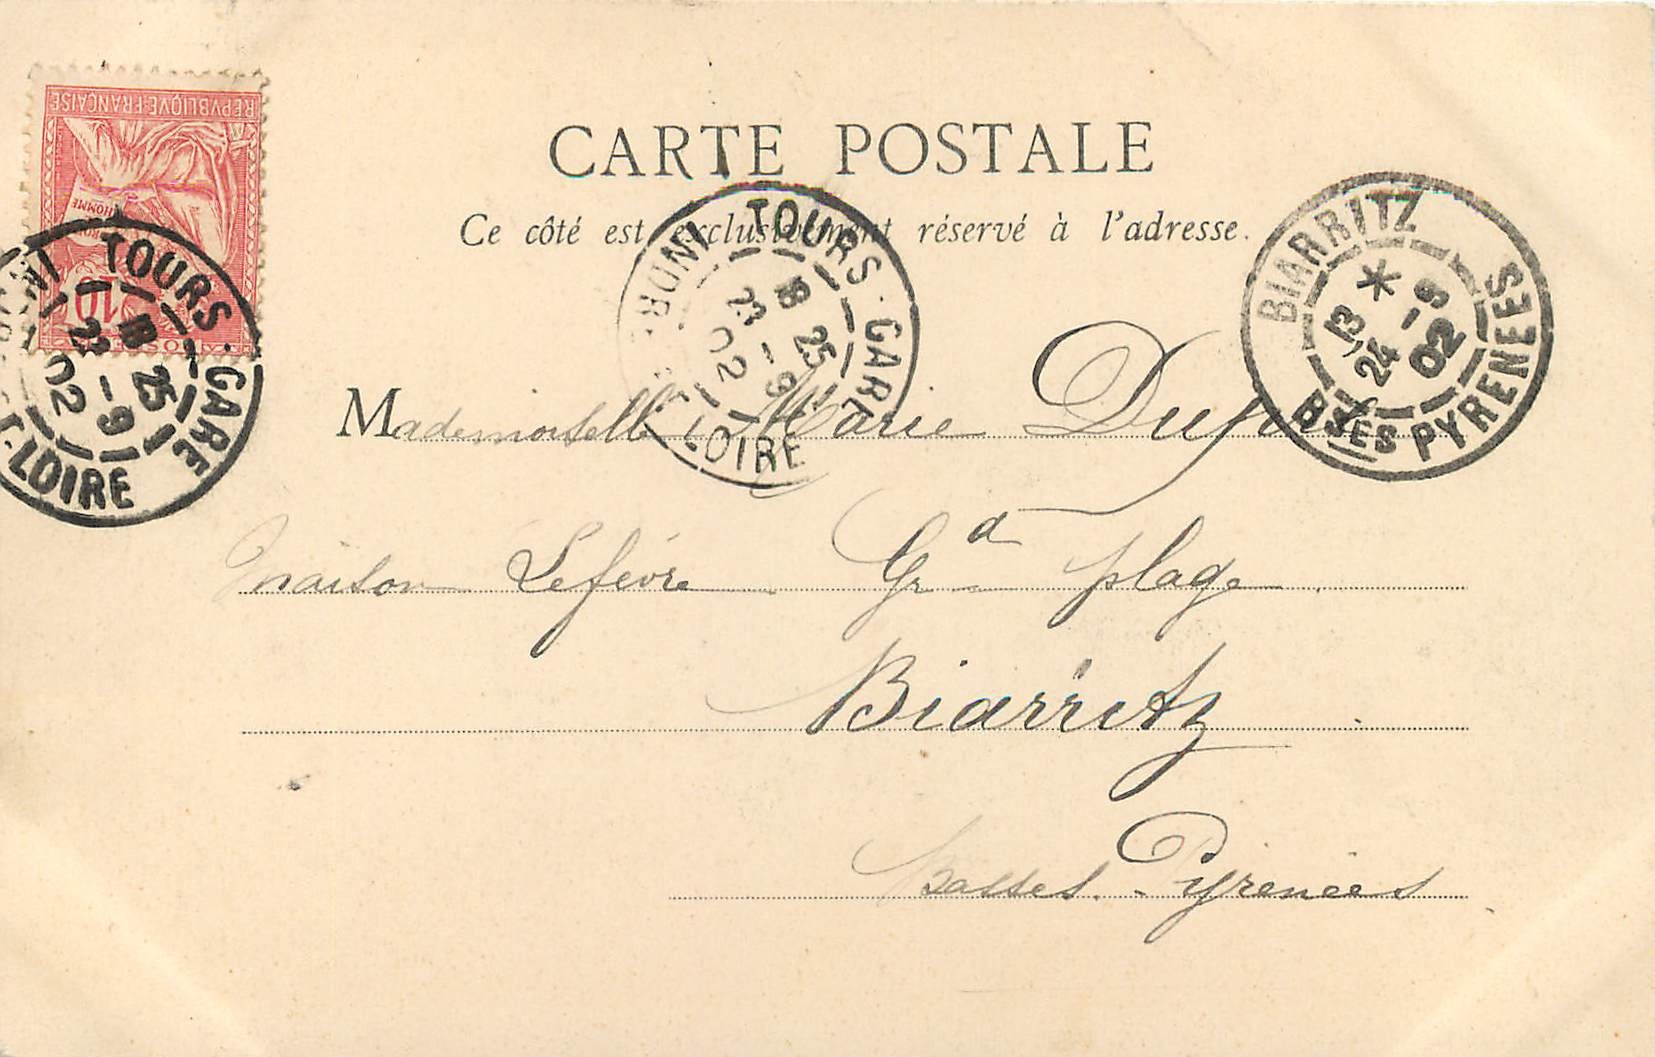 REPVBLIQVE FRANÇAISE
HOMME
10
TOURS-GARE
18 25
23 -9
02
-LOIRE
CARTE POSTALE
Ce côté est exclusivement réservé à l'adresse.
TOURS-GARE
18 25
23 -9
02
-LOIRE
BIARRITZ
*
13
24 -9
02
BSES PYRENEES
Mademoiselle Marie
maison Lefèvre Grde plage
Biarritz
Basses Pyrénées